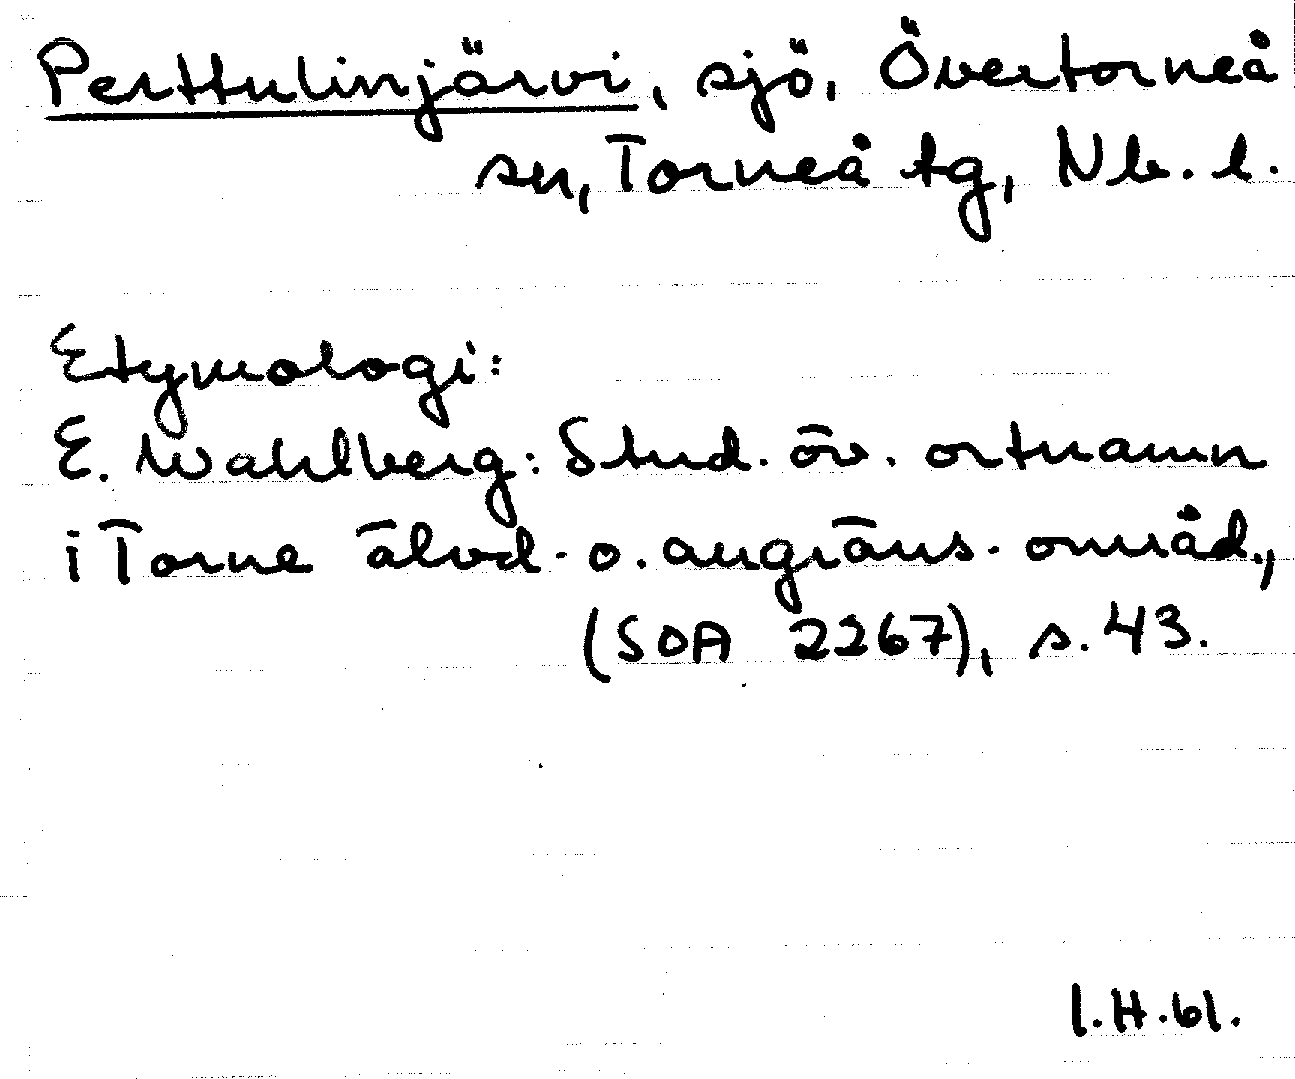 Perttulinjärvi, sjö, Övertorneå
sn, Torneå tg, Nb. l.
Etymologi:
E. Wahlberg: Stud. öv. ortnamn
i Torne älvd. o. angräns. områd.,
(SOA 2267), s. 43.
I.H.61.